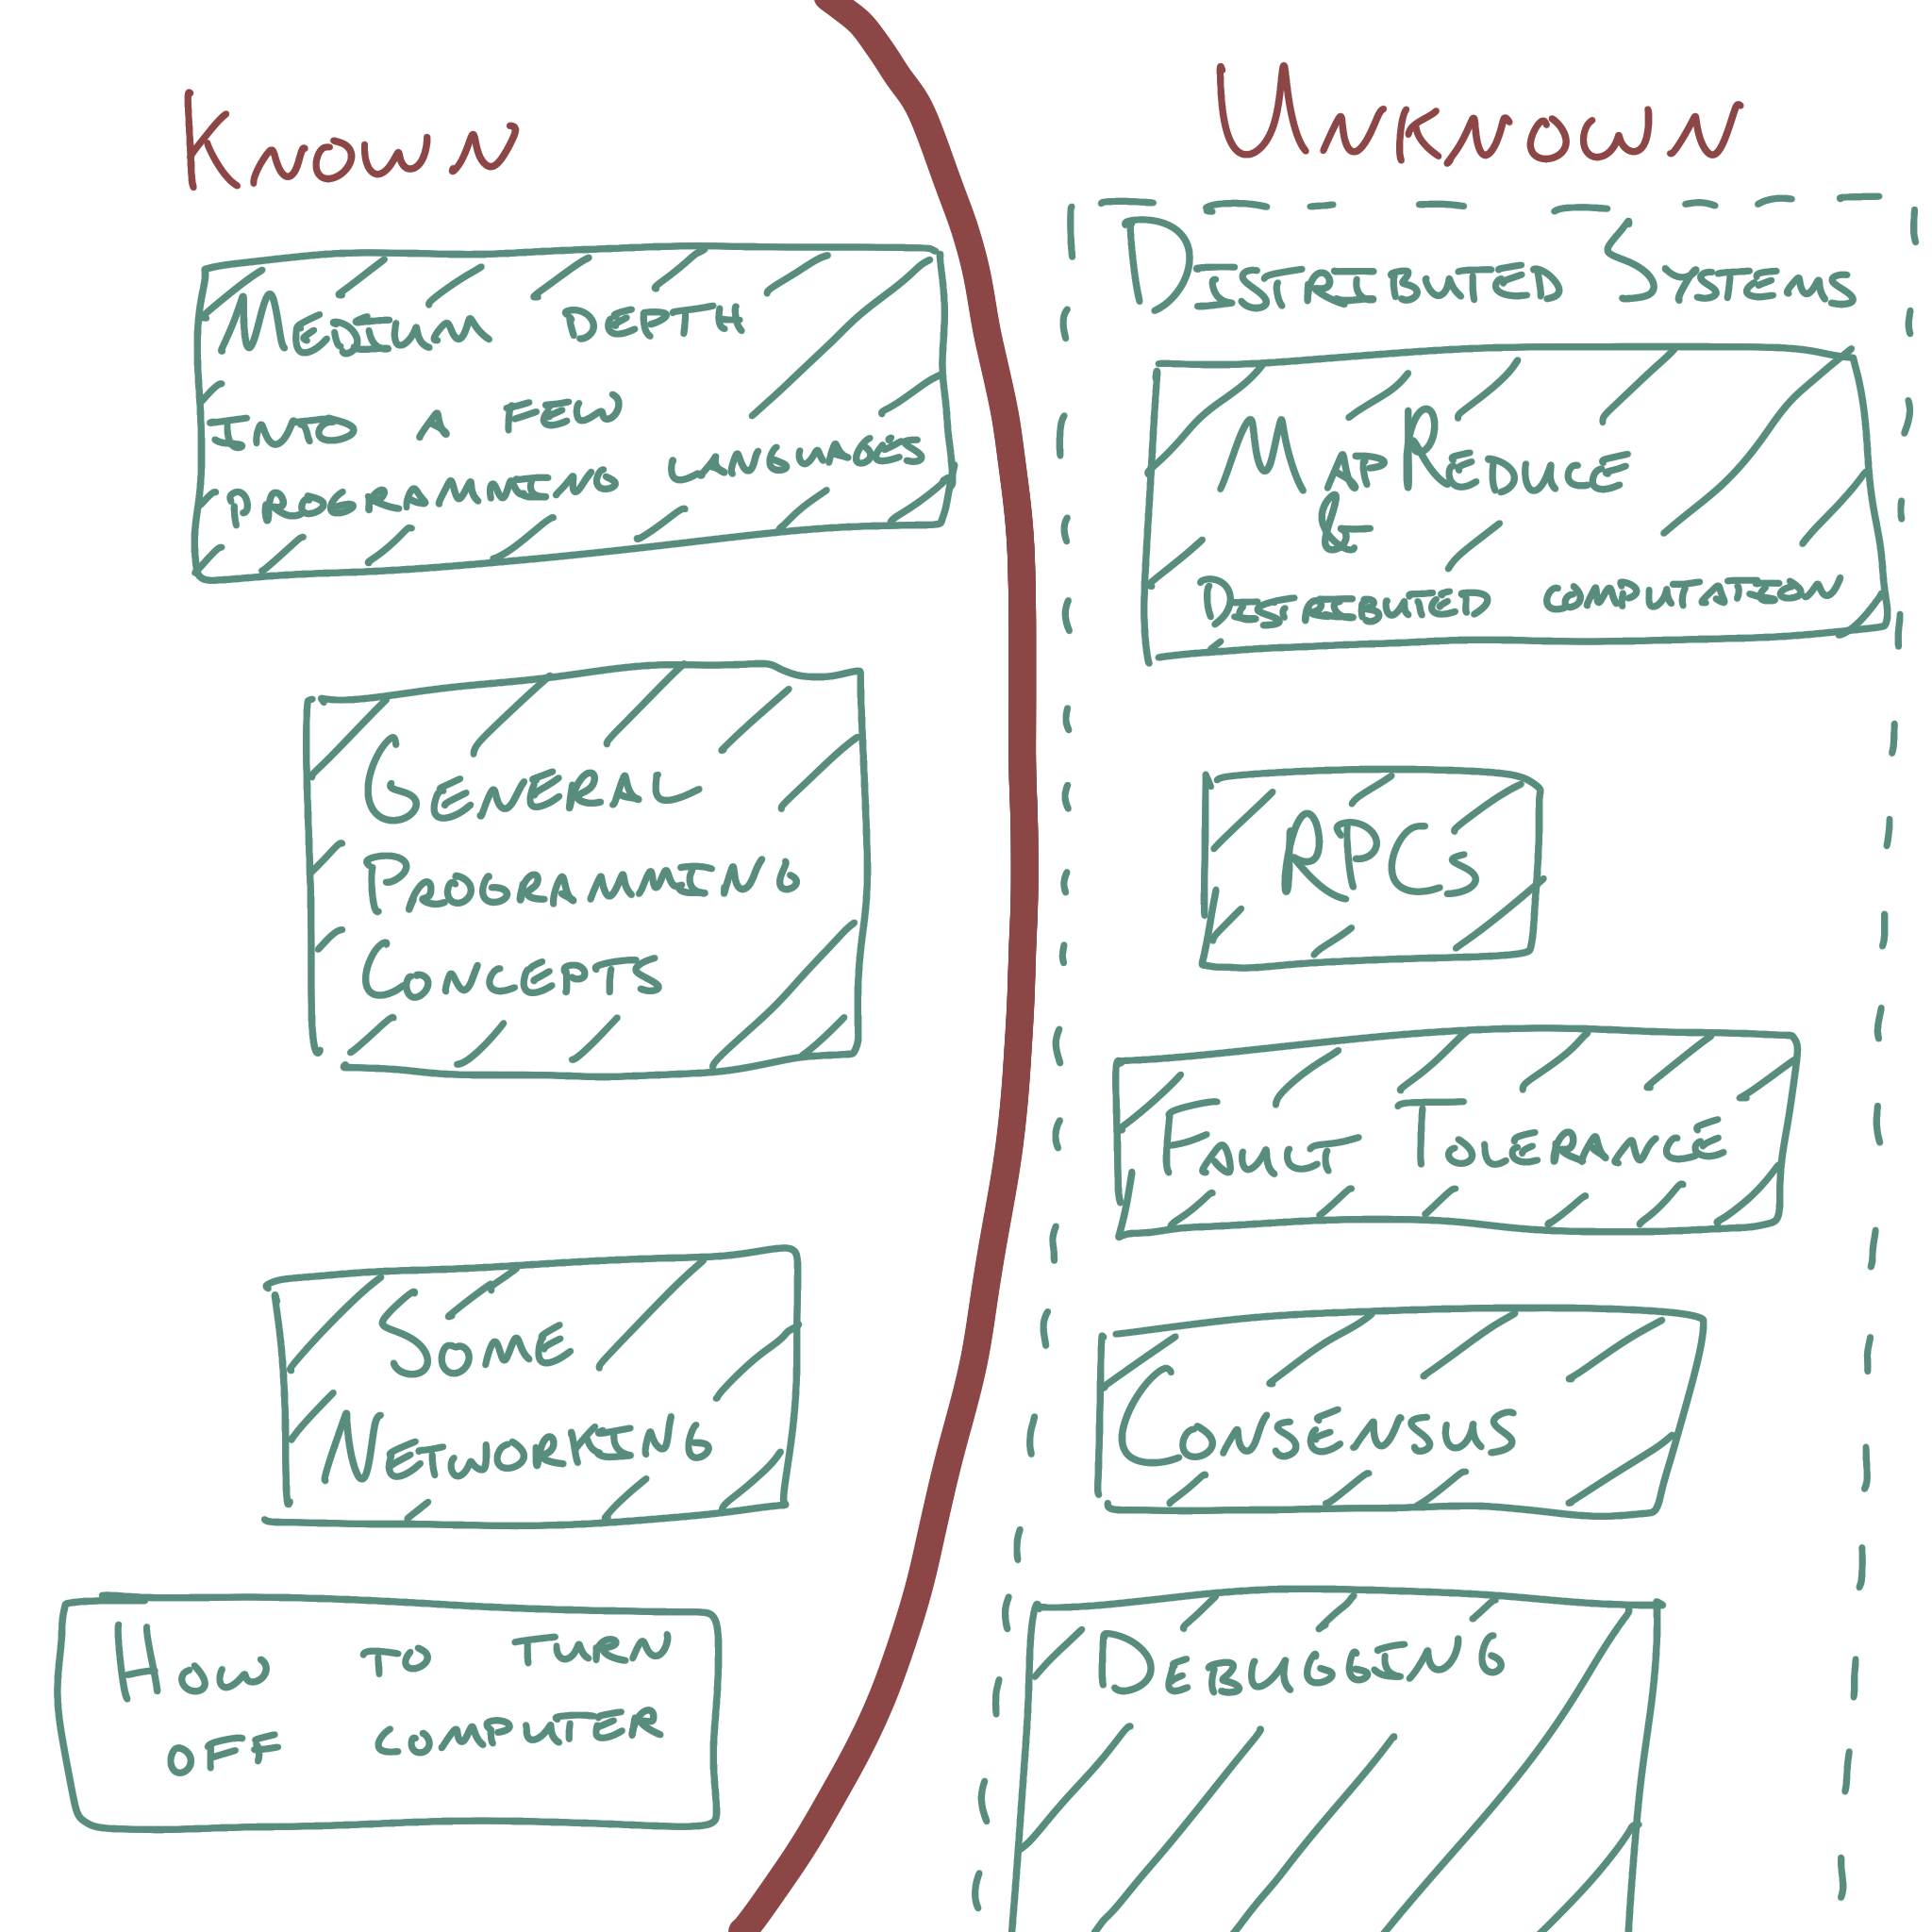 Known
MEDIUM DEPTH
INTO A FEW
PROGRAMMING LANGUAGES
GENERAL
PROGRAMMING
CONCEPTS
SOME
NETWORKING
HOW TO TURN
OFF COMPUTER
Unknown
DISTRIBUTED SYSTEMS
MAPREDUCE
&
DISTRIBUTED COMPUTATION
RPCs
FAULT TOLERANCE
CONSENSUS
DEBUGGING